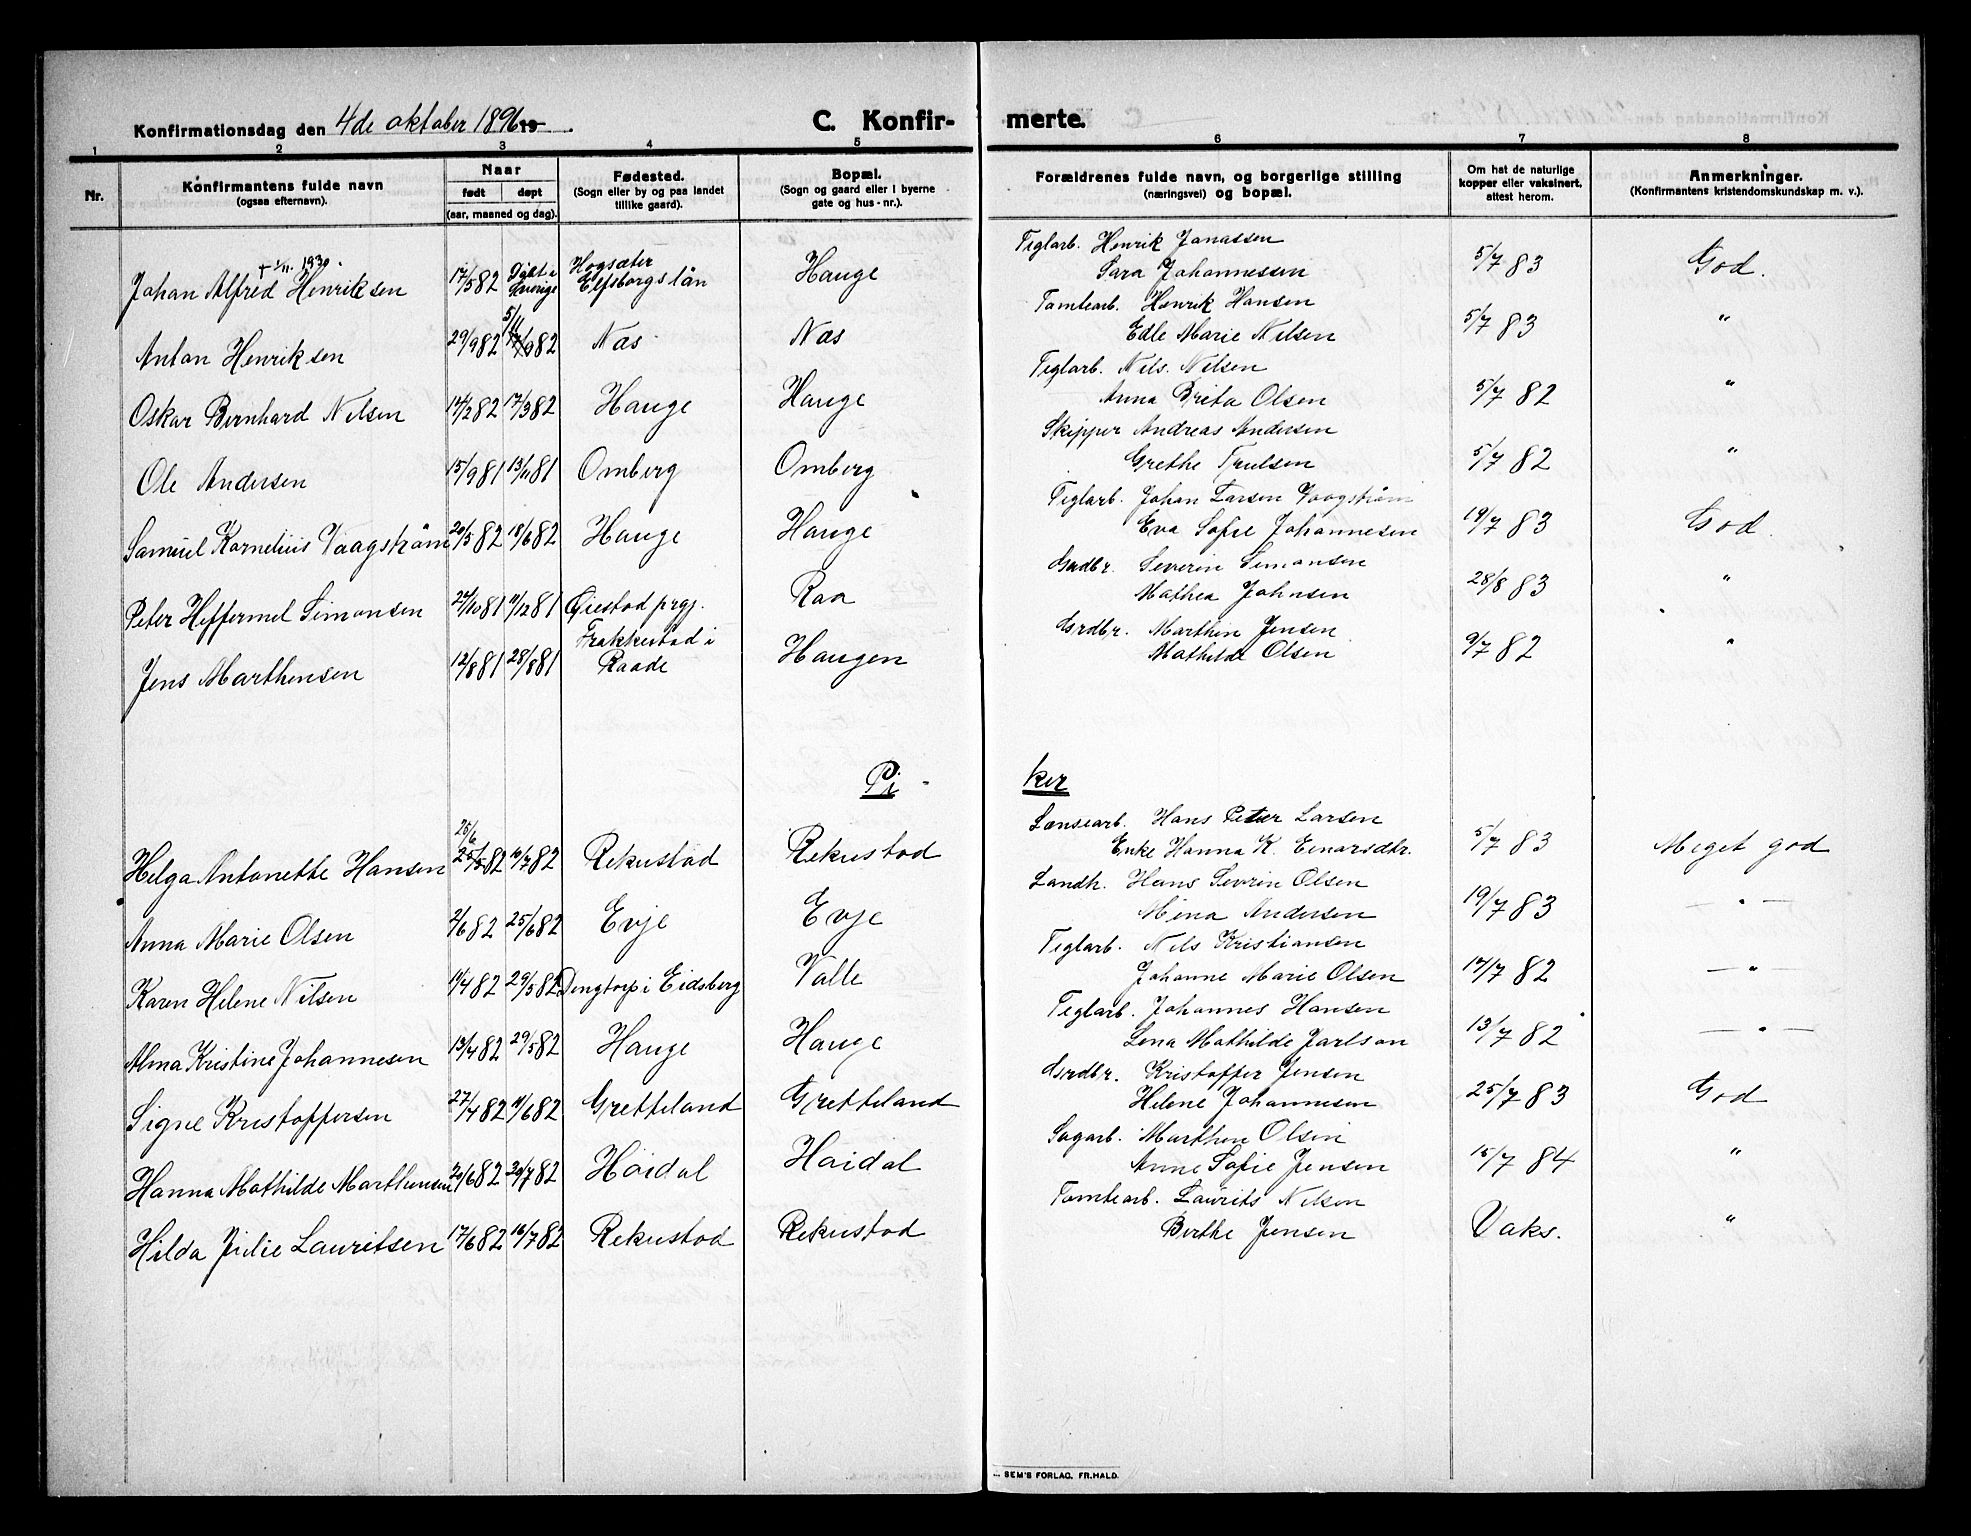 Konfirmationsdag den 4de oktober 1896 19
C. Konfirmerte.
1 2 3 4 5 6 7 8
Nr.
Konfirmantens fulde navn (ogsaa efternavn).
Naar født døpt (aar, maaned og dag).
Fødested. (Sogn eller by og paa landet tillike gaard).
Bopæl. (Sogn og gaard eller i byerne gate og hus-nr.).
Forældrenes fulde navn, og borgerlige stilling (næringsvei) og bopæl.
Om hat de naturlige kopper eller vaksinert, attest herom.
Anmerkninger. (Konfirmantens kristendomskundskap m. v.).
† 1/11. 1930.
Johan Alfred Henriksen 17/5 82 Døbt i Sverige Hogsæter Elfsborgslän Hauge Teglarb. Henrik Jonassen Sara Johannesen 5/7 83 God.
Anton Henriksen 29/9 82 5/11 82 Næs Næs Tomtearb. Henrik Hansen Edle Marie Nilsen 5/7 83 "
Oskar Bernhard Nilsen 14/2 82 17/3 82 Hauge Hauge Teglarb. Nils Nilsen Anna Brita Olsen 5/7 82 "
Ole Andersen 15/9 81 13/11 81 Omberg Omberg Skipper Andreas Andersen Grethe Trulsen 5/7 82 "
Samuel Kornelius Vaagström 20/5 82 18/6 82 Hauge Hauge Teglarb. Johan Larsen Vaagström Eva Sofie Johannesen 19/7 83 God.
Peter Heffermel Simonsen 24/10 81 11/12 81 Øiestad prgj. Raa Grdbr. Severin Simonsen Mathea Johnsen 28/8 83 "
Jens Marthinsen 12/8 81 28/8 81 Frakkestad i Raade Haugen Grdbr. Marthin Jensen Mathilde Olsen 9/7 82 "
Piker
Helga Antonette Hansen 25/6 25/5 82 16/7 82 Rekustad Rekustad Lænsearb. Hans Peter Larsen Enke Hanna K. Einarsdtr. 5/7 83 Meget god
Anna Marie Olsen 2/6 82 25/6 82 Evje Evje Landh. Hans Sevrin Olsen Mina Andersen 19/7 83 — " —
Karen Helene Nilsen 11/4 82 29/5 82 Dengtorp i Eidsberg Valle Teglarb. Nils Kristiansen Johanne Marie Olsen 17/7 82 — " —
Alma Kristine Johannesen 13/4 82 29/5 82 Hauge Hauge Teglarb. Johannes Hansen Lena Mathilde Jarlson 13/7 82 — " —
Signe Kristoffersen 27/4 82 11/6 82 Gretteland Gretteland Grdbr. Kristoffer Jensen Helene Johannesen 25/7 83 God
Hanna Mathilde Marthinsen 20/6 82 30/7 82 Höidal Höidal Sagarb. Marthin Olsen Anne Sofie Jensen 15/7 84 "
Hilda Julie Lauritsen 17/6 82 16/7 82 Rekustad Rekustad Tomtearb. Laurits Nilsen Berthe Jensen Vaks. "
SEM'S FORLAG, FR.HALD.